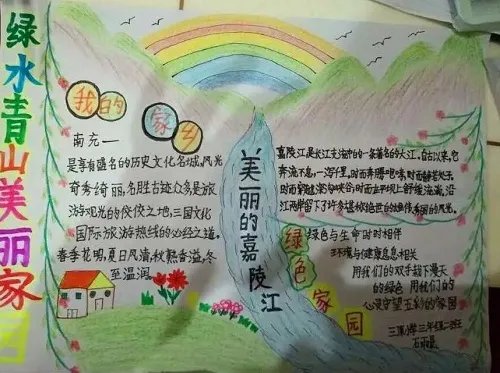 绿水青山美丽家园
我的家乡
南充一
是享有盛名的历史文化名城,风光
奇秀绮丽,名胜古迹众多是旅
游观光的佼佼之地,三国文化
国际旅游热线的必经之道。
春季花明,夏日风清,秋熟香溢,冬
至温润
美丽的嘉陵江
嘉陵江是长江支流中的一条著名的大江,自古以来,它
奔流不息,一泻千里,时而奔腾咆哮,时而
时而穿越深沟峡谷,时而在平坝上舒缓流淌,沿
江两岸留下了许多
绿色家园
绿色与生命时时相伴
环境与健康息息相关
用我们的双手超下漫天
的绿色 用我们的
心灵守望五彩的家园
三年级二班